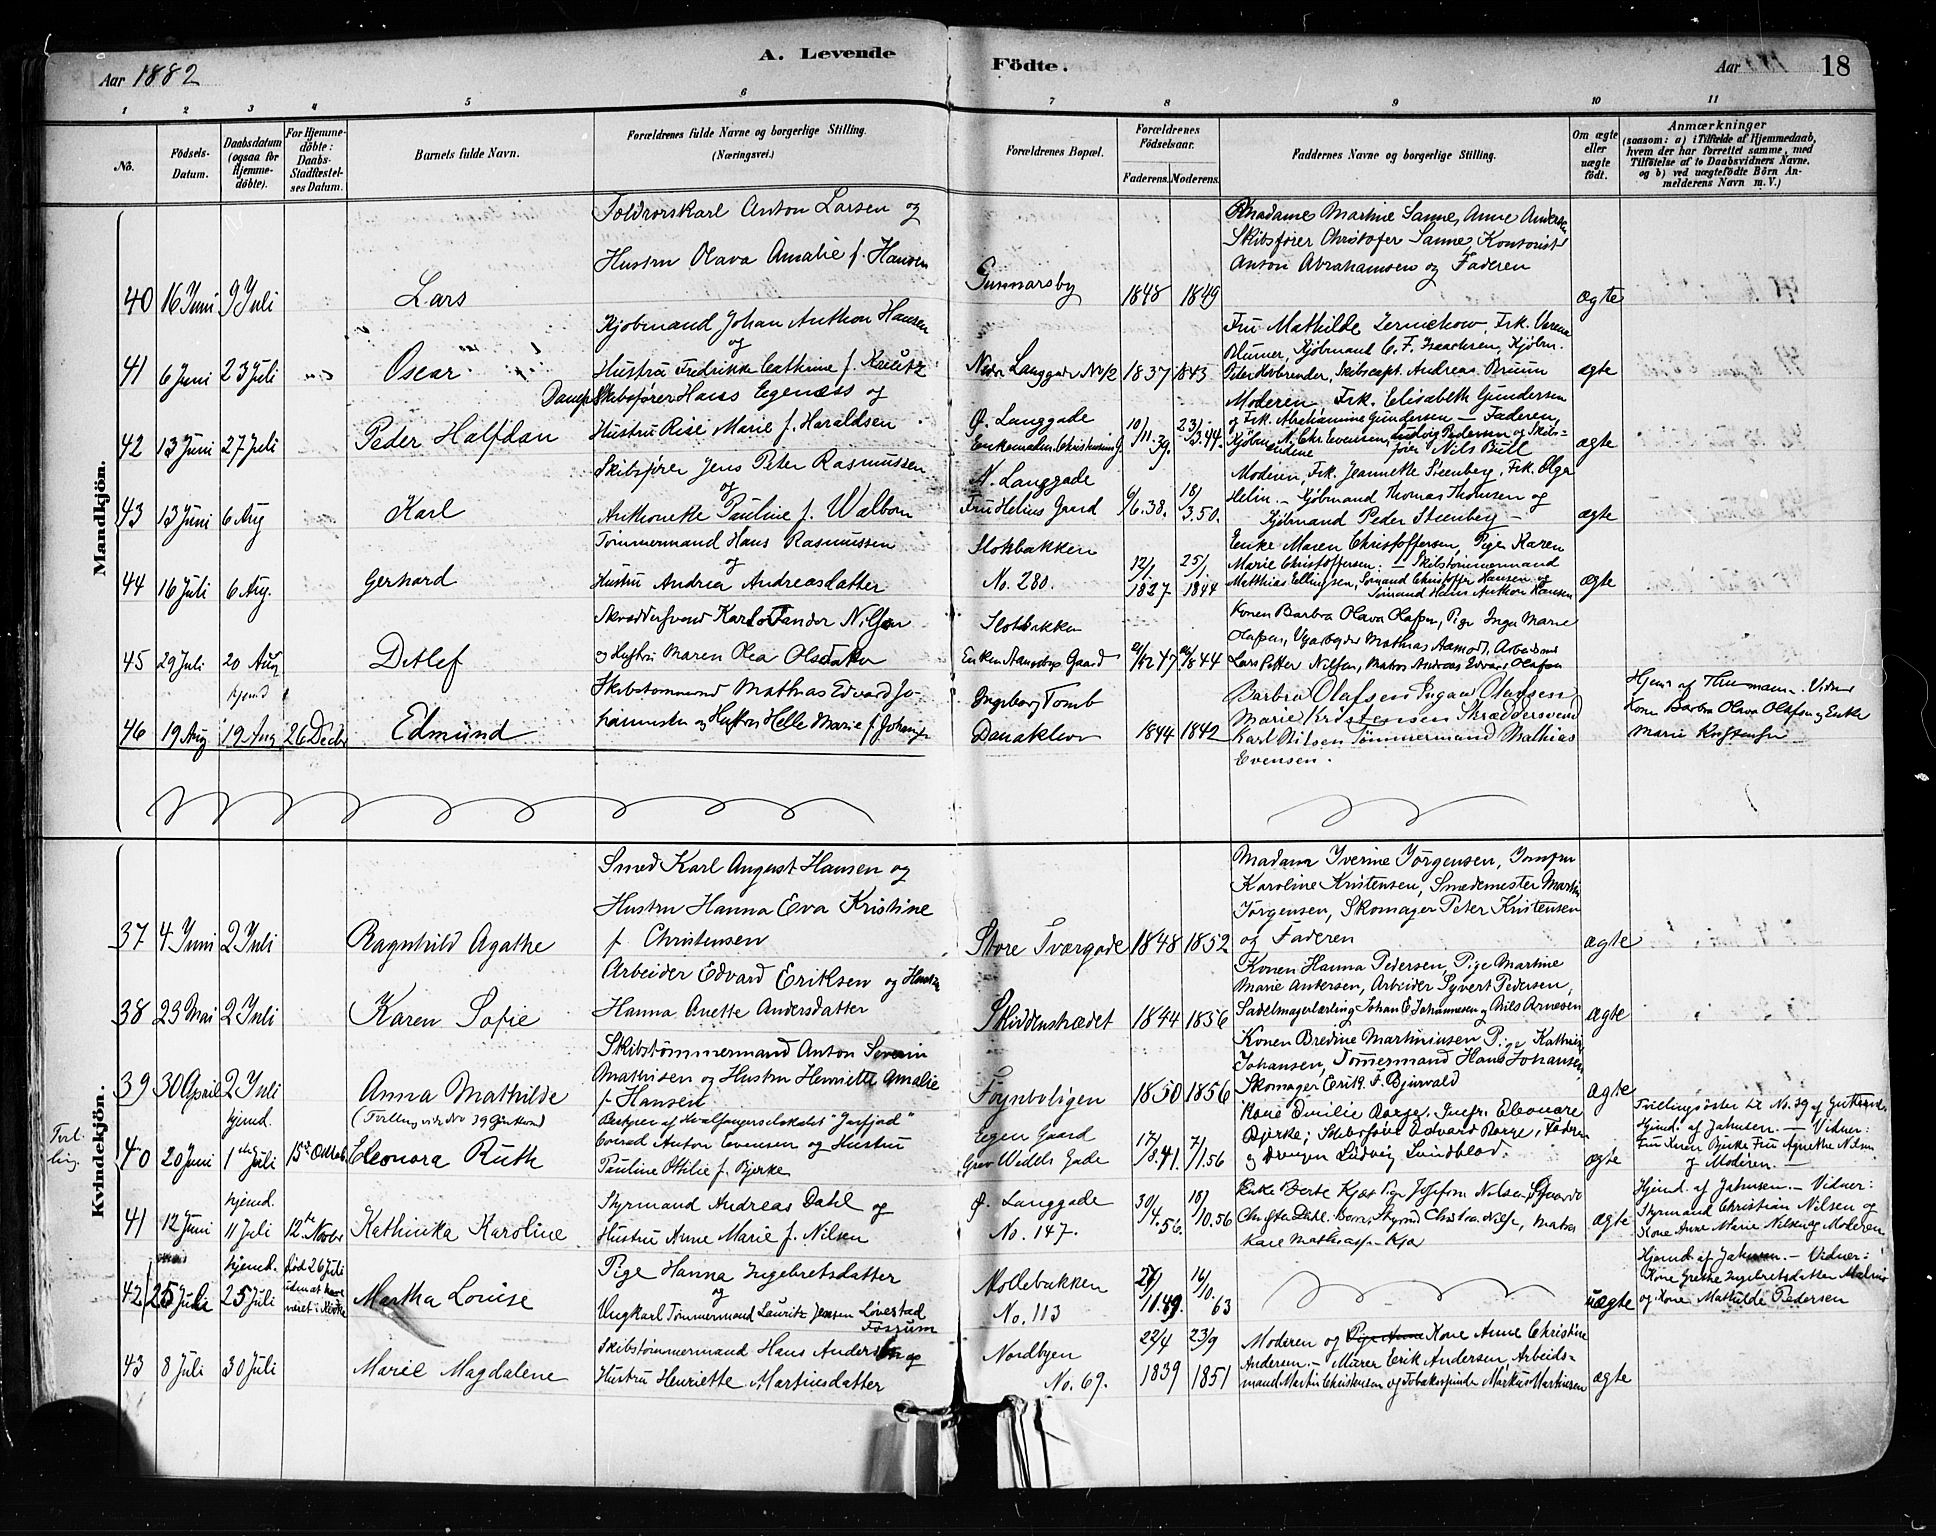 A. Levende Födte.
Aar 1882
Aar 18
1 2 3 4 5 6 7 8 9 10 11
No.
Födsels-Datum.
Daabsdatum (ogsaa for Hjemmedöbte).
For Hjemmedöbte: Daabs-Stadfæstelses Datum.
Barnets fulde Navn.
Forældrenes fulde Navne og borgerlige Stilling. (Næringsvei.)
Forældrenes Bopæl.
Forældrenes Födselsaar.
Faderens. Moderens.
Faddernes Navne og borgerlige Stilling.
Om ægte eller uægte født.
Anmærkninger
(saasom: a) i Tilfælde af Hjemmedaab, hvem der har forrettet samme, med Tilföielse af to Daabsvidners Navne, og b) ved uægtefödte Börn Anmelderens Navn m. V.)
Mandkjön.
Toldrorskarl Anton Larsen og
Hustru Olava Amalie f. Hansen
40 16 Juni 9 Juli Lars Gunnarsby 1848 1849 ægte
Madame Martine Sanne, Anne Andersen
Skibsfører Christofer Sanne, Kontorist
Anton Abrahamsen og Faderen
Kjøbmand Johan Anthon Hansen
og
41 6 Juni 23 Juli Oscar Hustru Fredrikke Cathrine f. Nedre Langgade No 12 1837 1843 ægte
Fru Mathilde Frk. Verena
Blumer, Kjøbmand C. F. Isaachsen, Kjøbm.
Skibscapt. Andreas Bruun
Damp Skibsfører Hans Egenæss og
42 13 Juni 27 Juli Peder Halfdan Hustru Rise Marie f. Haraldsen Ø. Langgade 10/11.39. 23/3.44. ægte
Moderen Frk. Elisabeth Gundersen
og Frk. Abrahamine Gundersen — Faderen,
Kjøbm N. Chr. Evensen, Ludvig Pedersen og Skibsfører Nils Bull
Skibsfører Jens Peter Rasmussen
og
43 13 Juni 6 Aug Karl Anthonette Pauline f. Walbom N. Langgade Fru Helius Gaard 6/6.38. 18/3.50. ægte
Moderen, Frk. Jeannette Steenberg, Frk. Olga
Helin. — Kjøbmand Thomas Thomsen og
Kjøbmand Peder Steenberg —
Tømmermand Hans Rasmussen
og
44 16 Juli 6 Aug. Gerhard Hustru Andrea Andreasdatter Slotsbakken No. 280. 12/1 1827 25/1 1844 ægte
Enke Maren Christoffersen, Pige Karen
Marie Christoffersen: — Skibstømmermand
Matthias Ellingsen, Sømand Christoffer Hansen og
Sømand Hans Anthon Hansen
Skræddersvend Karl Nilsen
45 29 Juli 20 Aug Detlef og Hustru Maren Olea Olsdatter Slotsbakken Enken Gaard 47 44 ægte
Konen Barbra Olava Olafsen, Pige Inga Marie
Olafsen, Mathias Aamodt, Arbeidsmd
Lars Petter Nilsen, Matros Andreas Edvard Olafsen
Skibstømmermd Mathias Edvard Johannesen og Hustru Helle Marie f. Johansen
46 19 Aug hjemd 19 Aug 26 Decbr Edmund Ingeborg Tomb Danaklev 1844 1842
Barbra Olafsen Inga Olafsen
Marie Kristensen Skræddersvend
Karl Nilsen Tømmermand Mathias
Evensen.
Hjemd af Vidner
Kone Barbra Olava Olafsen og Enke
Marie Kristensen
Kvindekjön.
Smed Karl August Hansen og
Hustru Hanna Eva Kristine
37 4 Juni 2 Juli Ragnhild Agathe f. Christensen Store Tværgade 1848 1852 ægte
Madame Iverine Jørgensen, Jomfru
Karoline Kristensen, Smedemester Martin
Jørgensen, Skomager Peter Kristensen
og Faderen
Arbeider Edvard Eriksen og Hustru
38 23 Mai 2 Juli Karen Sofie Hanna Anette Andersdatter Skiddenstrædet 1844 1856 ægte
Konen Hanna Pedersen, Pige Martine
Marie Antersen, Arbeider Syvert Pedersen,
Sadelmagerlærling Johan E. Johannesen og Nils Arnesen
Skibstømmermand Anton Severin
Mathisen og Hustru Henriette Amalie
39 30 April 2 Juli Anna Mathilde f. Hansen Foynboligen 1850 1856 ægte
Konen Bredine Martiniusen Pige Kathrine
Johansen, Tømmermand Hans Johansen,
Skomager Eerik F. Bjurvald
(Tvilling vide No 39 Gutkond)
Tvilling.
Bestyrer af Hvalfangerselskabet "Jarfjad"
Conrad Anton Evensen og Hustru
40 20 Juni hjemd. 1ste Juli 15de Octob. Eleonora Ruth Pauline Otilie f. Bjerke Egen Gaard Grev Wedels Gade 17/8.41. 7/1.56 ægte
Kone Emilie Borge, Jmfr. Eleonore
Bjerke; Skibsfører Edvard Borge, Faderen
og Drengen Ludvig Lindblad.
Tvillingsøster til No. 39 af Guttende
Hjemd. af Jahnsen. — Vidner:
Fru Karen Bjerke Fru Agnethe Nilsen
og Moderen. —
Styrmand Andreas Dahl og
41 12 Juni hjemd. 11 Juli 12te Novbr Kathinka Karoline Hustru Anne Marie f. Nilsen Ø. Langgade No. 147. 30/4.56. 18/10.56 ægte
Enke Berte Kjær Pige Josefine Nilsen
Christian Nilsen, Matros
Karl Mathias Kjær
Hjemd. af Jahnsen. — Vidner:
Styrmand Christian Nilsen og
Kone Anne Marie Nilsen og Moderen
Pige Hanna Ingebretsdatter
og
42 25 Juli hjemd. 25 Juli død 26 Juli uden at have været i Kirke Martha Louise Ungkarl Tømmermand Lauritz Jensen Løvestad Fossum Møllebakken No. 113 11.49. 16/10.63 uægte
Hjemd. af Jahnsen. — Vidner:
Kone Grethe Ingebretsdatter Malmø
og Kone Mathilde Pedersen
Skibstømmermand Hans Andersen og
43 8 Juli 30 Juli Marie Magdalene Hustru Henriette Martinsdatter Nordbyen No. 69. 22/4 1839 23/9 1851 ægte
Moderen og Kone Anne Christine
Andersen. — Murer Eerik Andersen, Arbeidsmand Martin Christensen og Tobakspinder Markus Martinsen